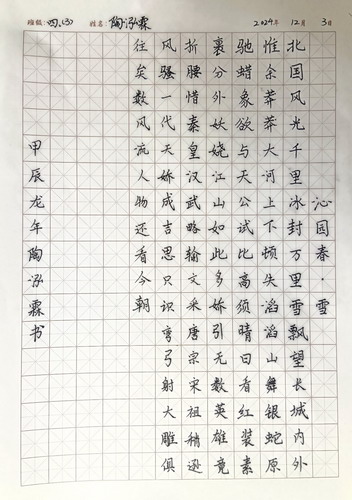 班级: 四.(3) 姓名: 陶泓霖 2024年 12月 3日
沁园春·雪
北国风光千里冰封万里雪飘望长城内外
惟余莽莽大河上下顿失滔滔山舞银蛇原
驰蜡象欲与天公试比高须晴日看红装素
裹分外妖娆江山如此多娇引无数英雄竟
折腰惜秦皇汉武略输文采唐宗宋祖稍逊
风骚一代天娇成吉思只识弯弓射大雕俱
往矣数风流人物还看今朝
甲辰龙年陶泓霖书